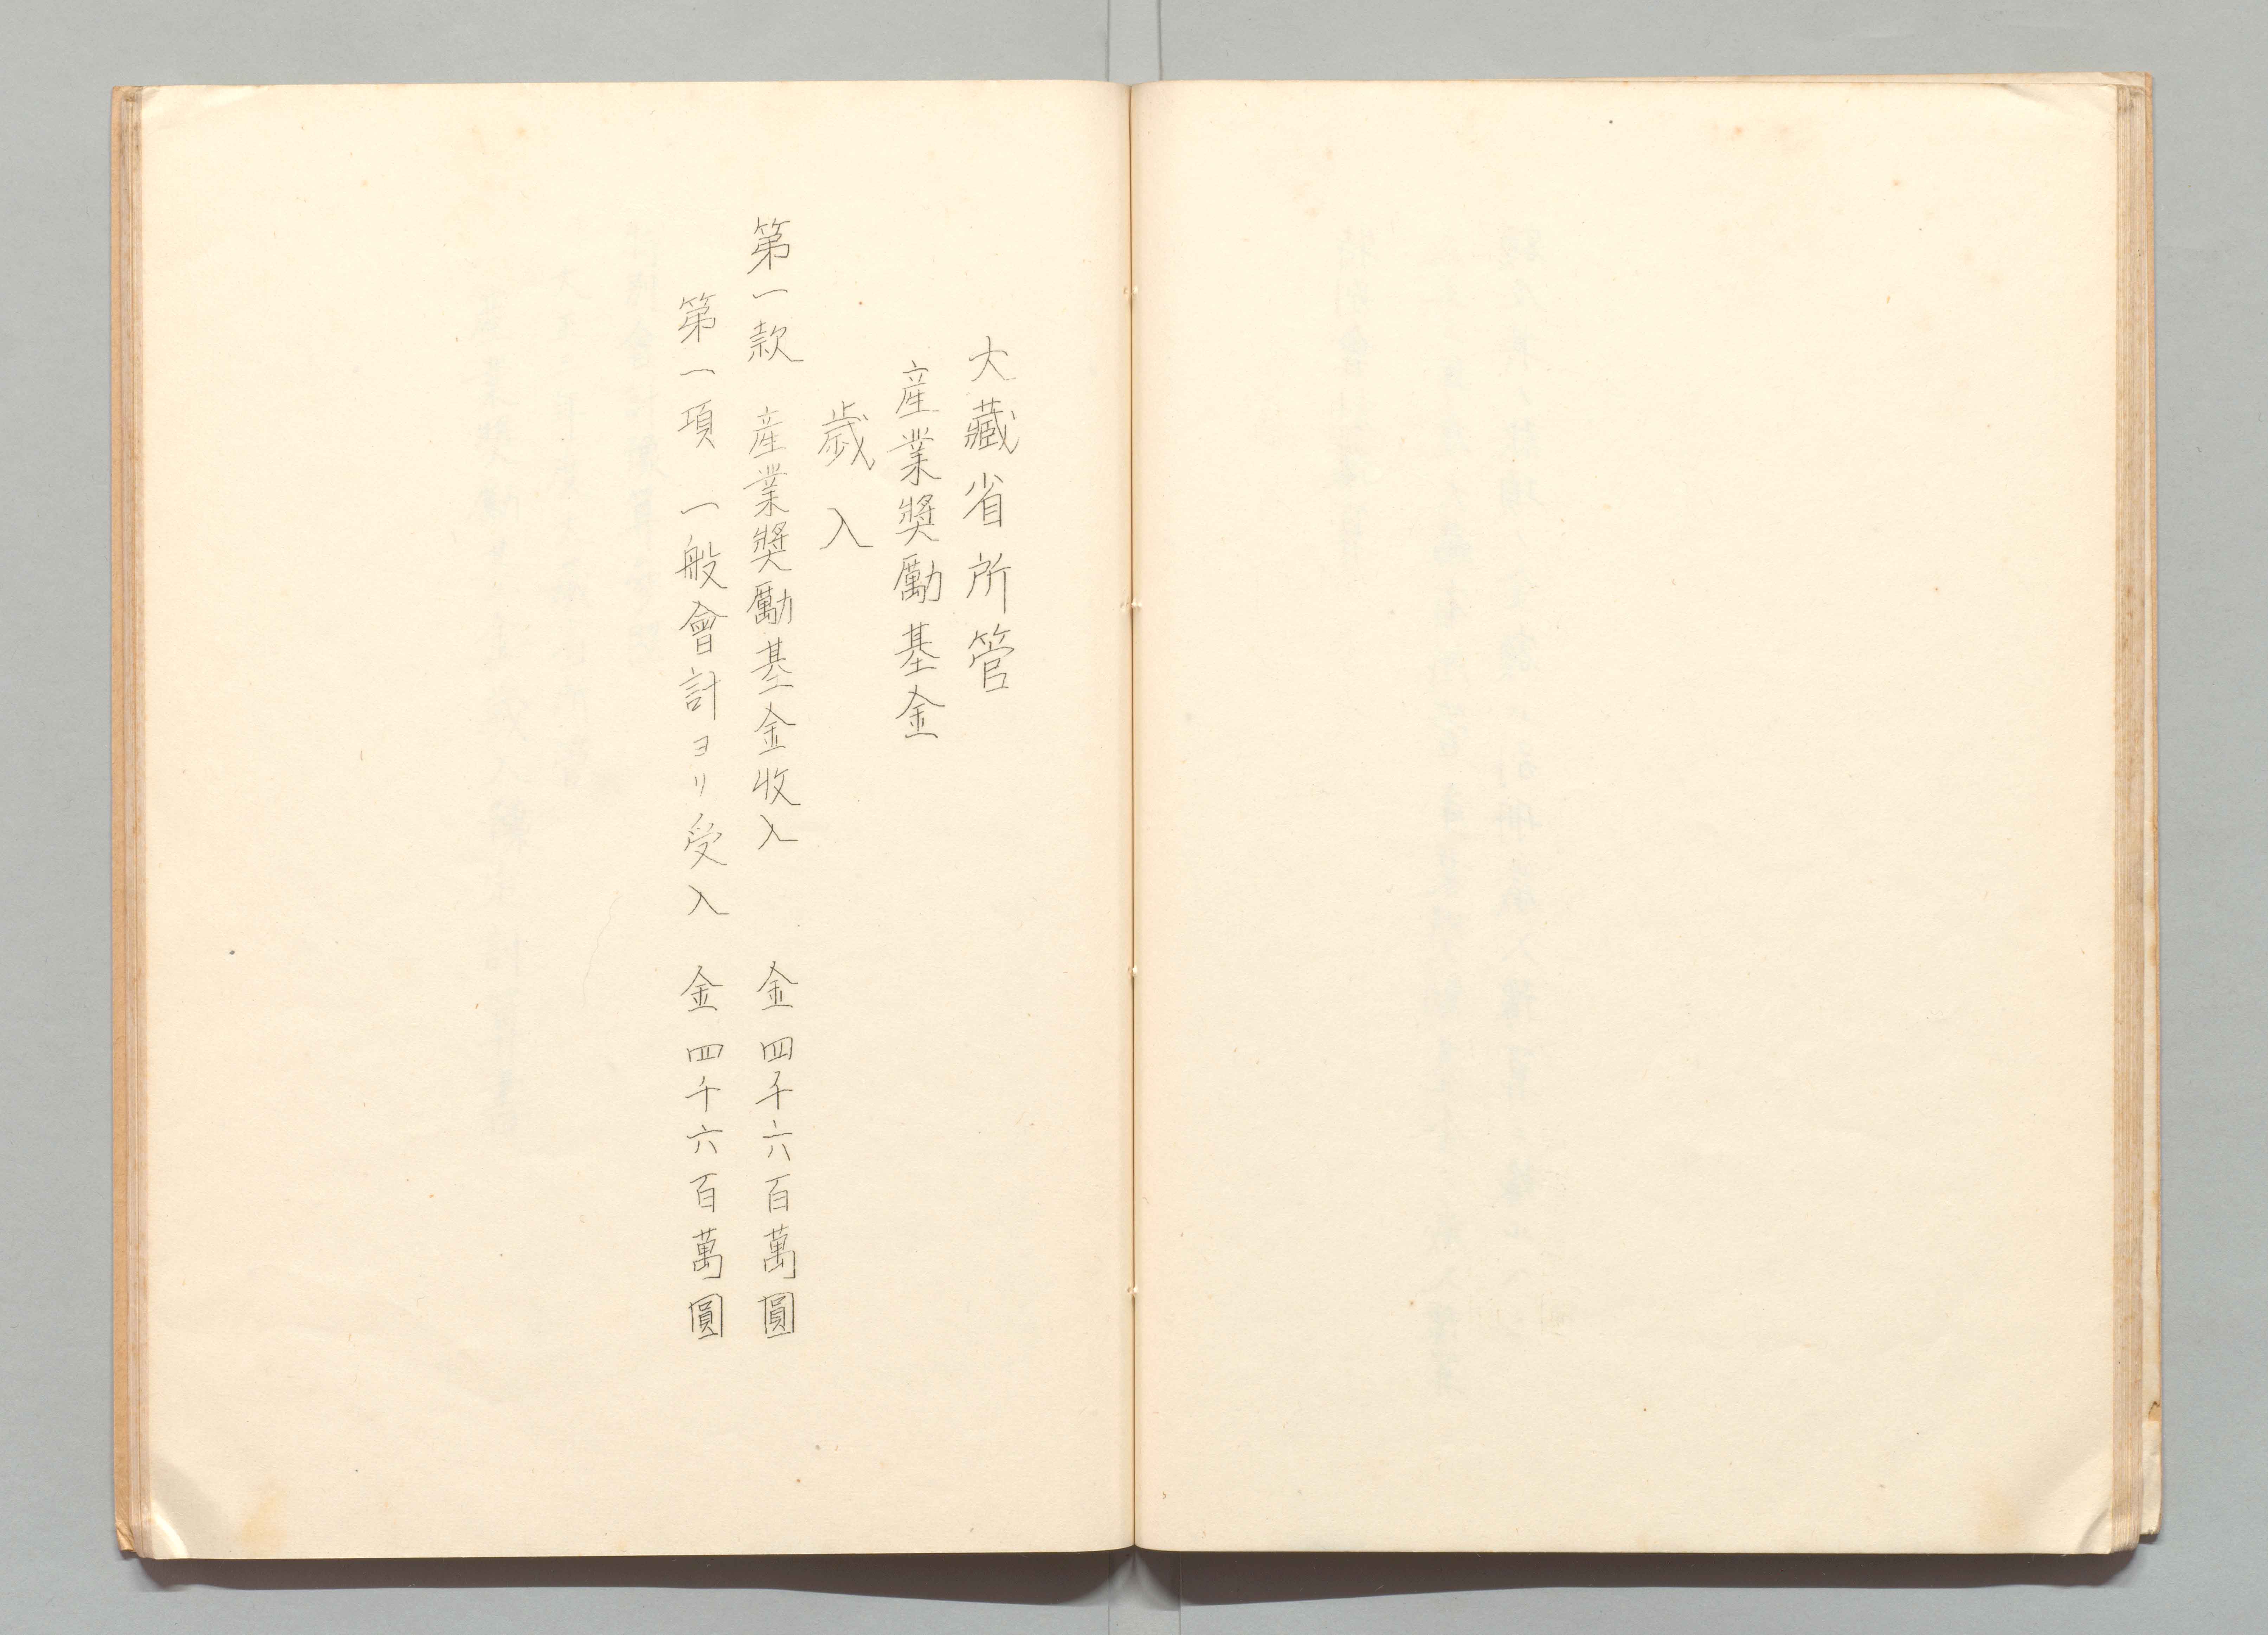 大藏省所管
産業奬勵基金
歲入
第一款 産業奬勵基金收入 金四千六百萬圓
第一項 一般會計ヨリ受入 金四千六百萬圓